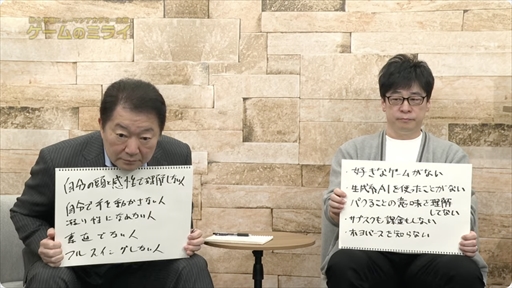 ゲームのミライ
自分の頭と感性で理解しない人
自分で手を動かさない人
凝り性になれない人
素直でない人
フルスイングしない人
・好きなゲームがない
・生成AIを使ったことがない
・パクることの意味を理解
してない
・サブスクも課金もしない
・ネオバースを知らない